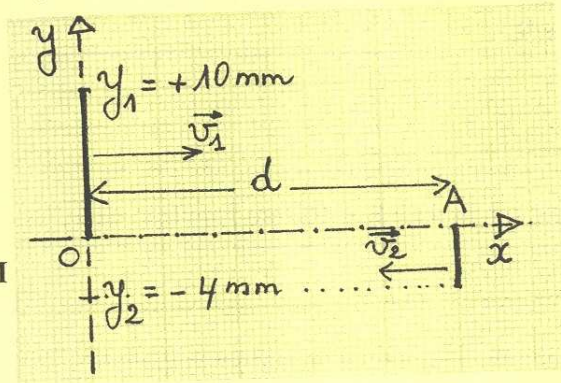 y
y₁ = +10 mm
v₁
d
A
O
v₂
x
y₂ = -4 mm
I